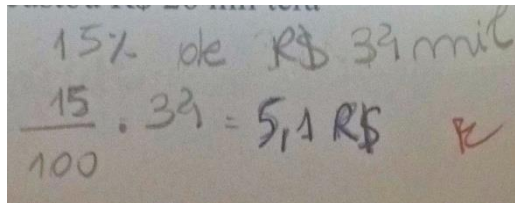 15% de R$ 34 mil
15/100 . 34 = 5,1 R$